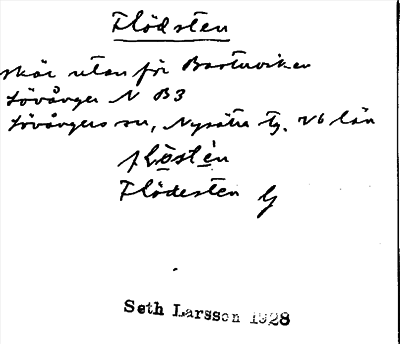 Flödsten
skär utanför Bastuviken
Lövånger N B3
Lövångers sn, Nysätra tg. Vb län
Flödesten G
Seth Larsson 1928